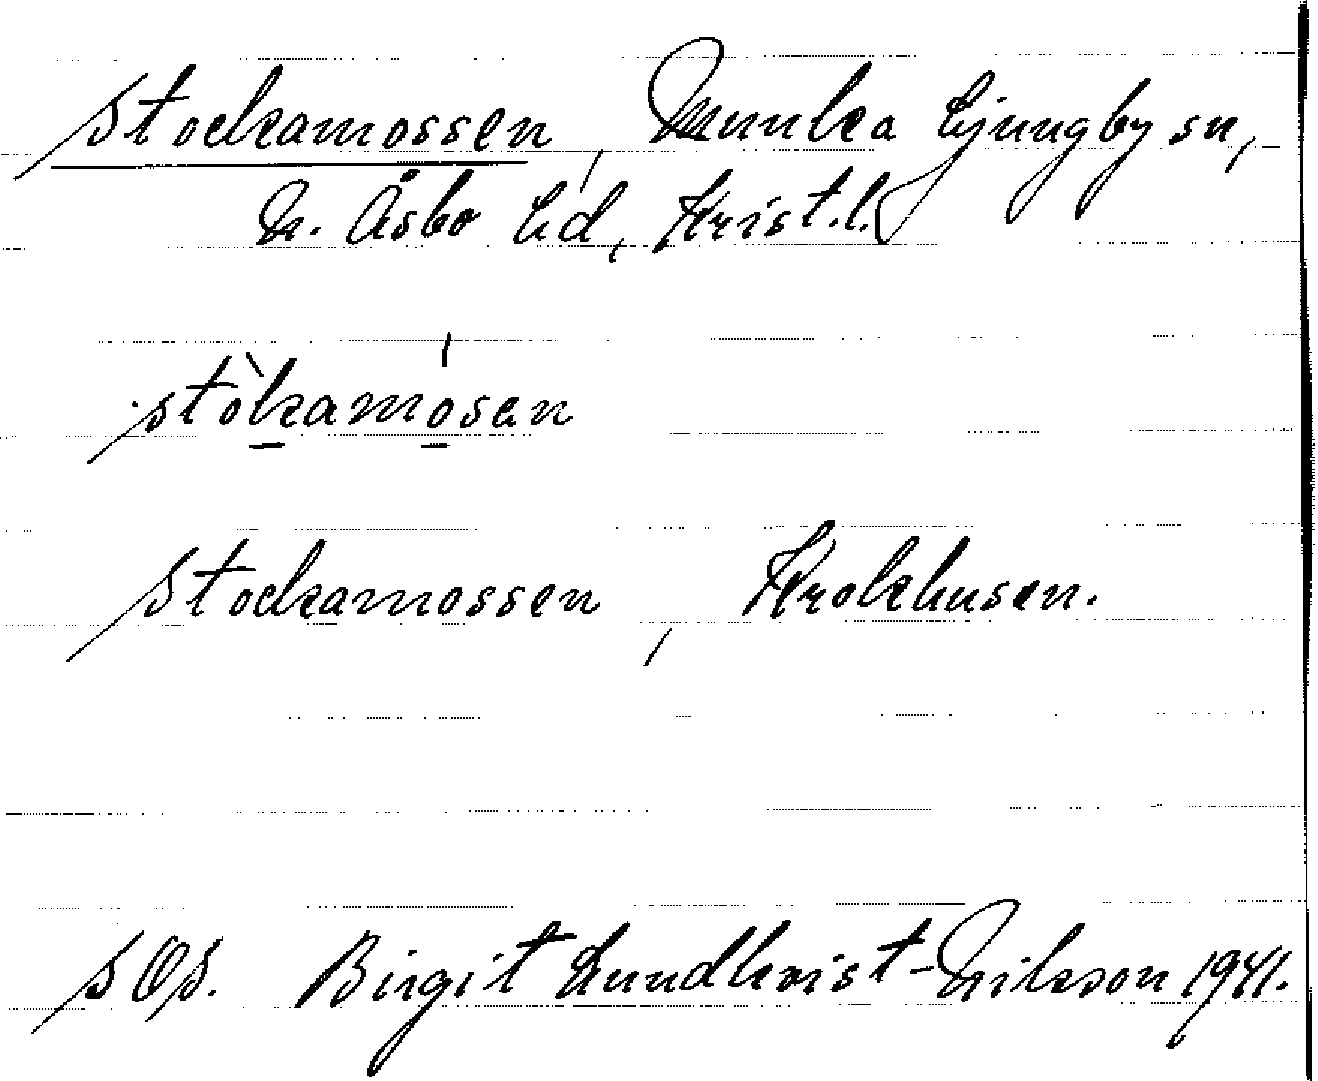 Stockamossen, Munka Ljungby sn,
N. Åsbo hd, Krist.l.
stòkamósen
Stockamossen, Krokhusen.
SOS. Birgit Lundkvist-Nilsson 1941.